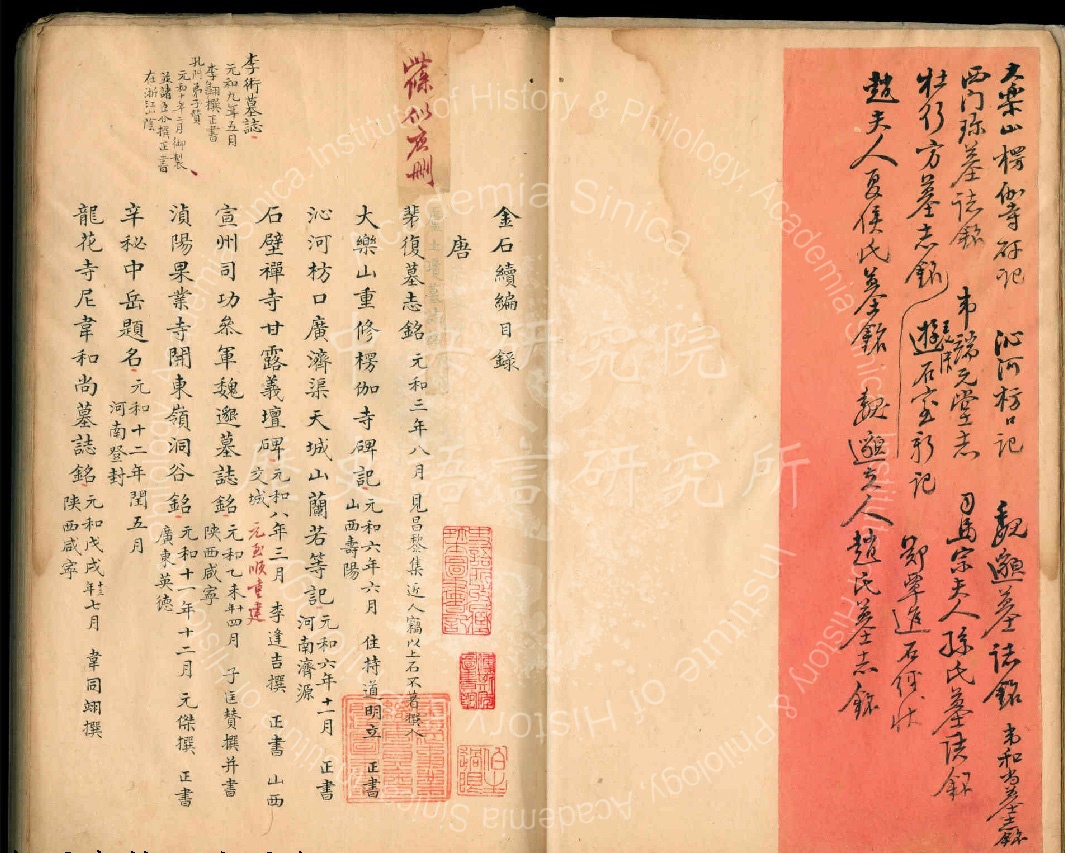 大樂山楞伽寺碑記 沁河枋口記 魏邈墓誌銘 韋和尚墓志銘
西門珍墓誌銘 韋端元堂志 司馬宗夫人孫氏墓誌銘
杜行方墓志銘 遊石室新記 鄭覃進石經狀
趙夫人夏侯氏墓銘 魏邈夫人趙氏墓志銘
此條似應刪
金石續編目錄
唐
裴復墓志銘 元和三年八月 見昌黎集近人竊以上石不著撰人
大樂山重修楞伽寺碑記 元和六年六月 住持道明立 正書
山西壽陽
沁河枋口廣濟渠天城山蘭若等記 元和六年十二月 正書
河南濟源
石壁禪寺甘露義壇碑 元和八年三月 李逢吉撰 正書 山西
交城 元至順重建
宣州司功參軍魏邈墓誌銘 元和乙未年十四月 子匡贊撰并書
陝西咸寧
湞陽果業寺開東嶺洞谷銘 元和十一年十二月 元傑撰 正書
廣東英德
辛秘中岳題名 元和十二年閏五月
河南登封
龍花寺尼韋和尚墓誌銘 元和戊戌年十三七月 韋同翊撰
陝西咸寧
李術墓誌
元和九年五月
李翱撰正書
孔門弟子贊
元和十年二月御製
並諸臣分撰正書
在浙江山陰
中央研究院
歷史語言研究所
Institute of History & Philology, Academia Sinica